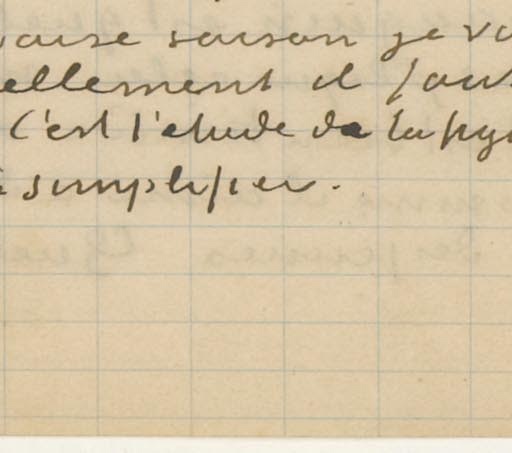 vaise saison je v
ellement il faut
C'est l'etude de la pyr
à simplifier.